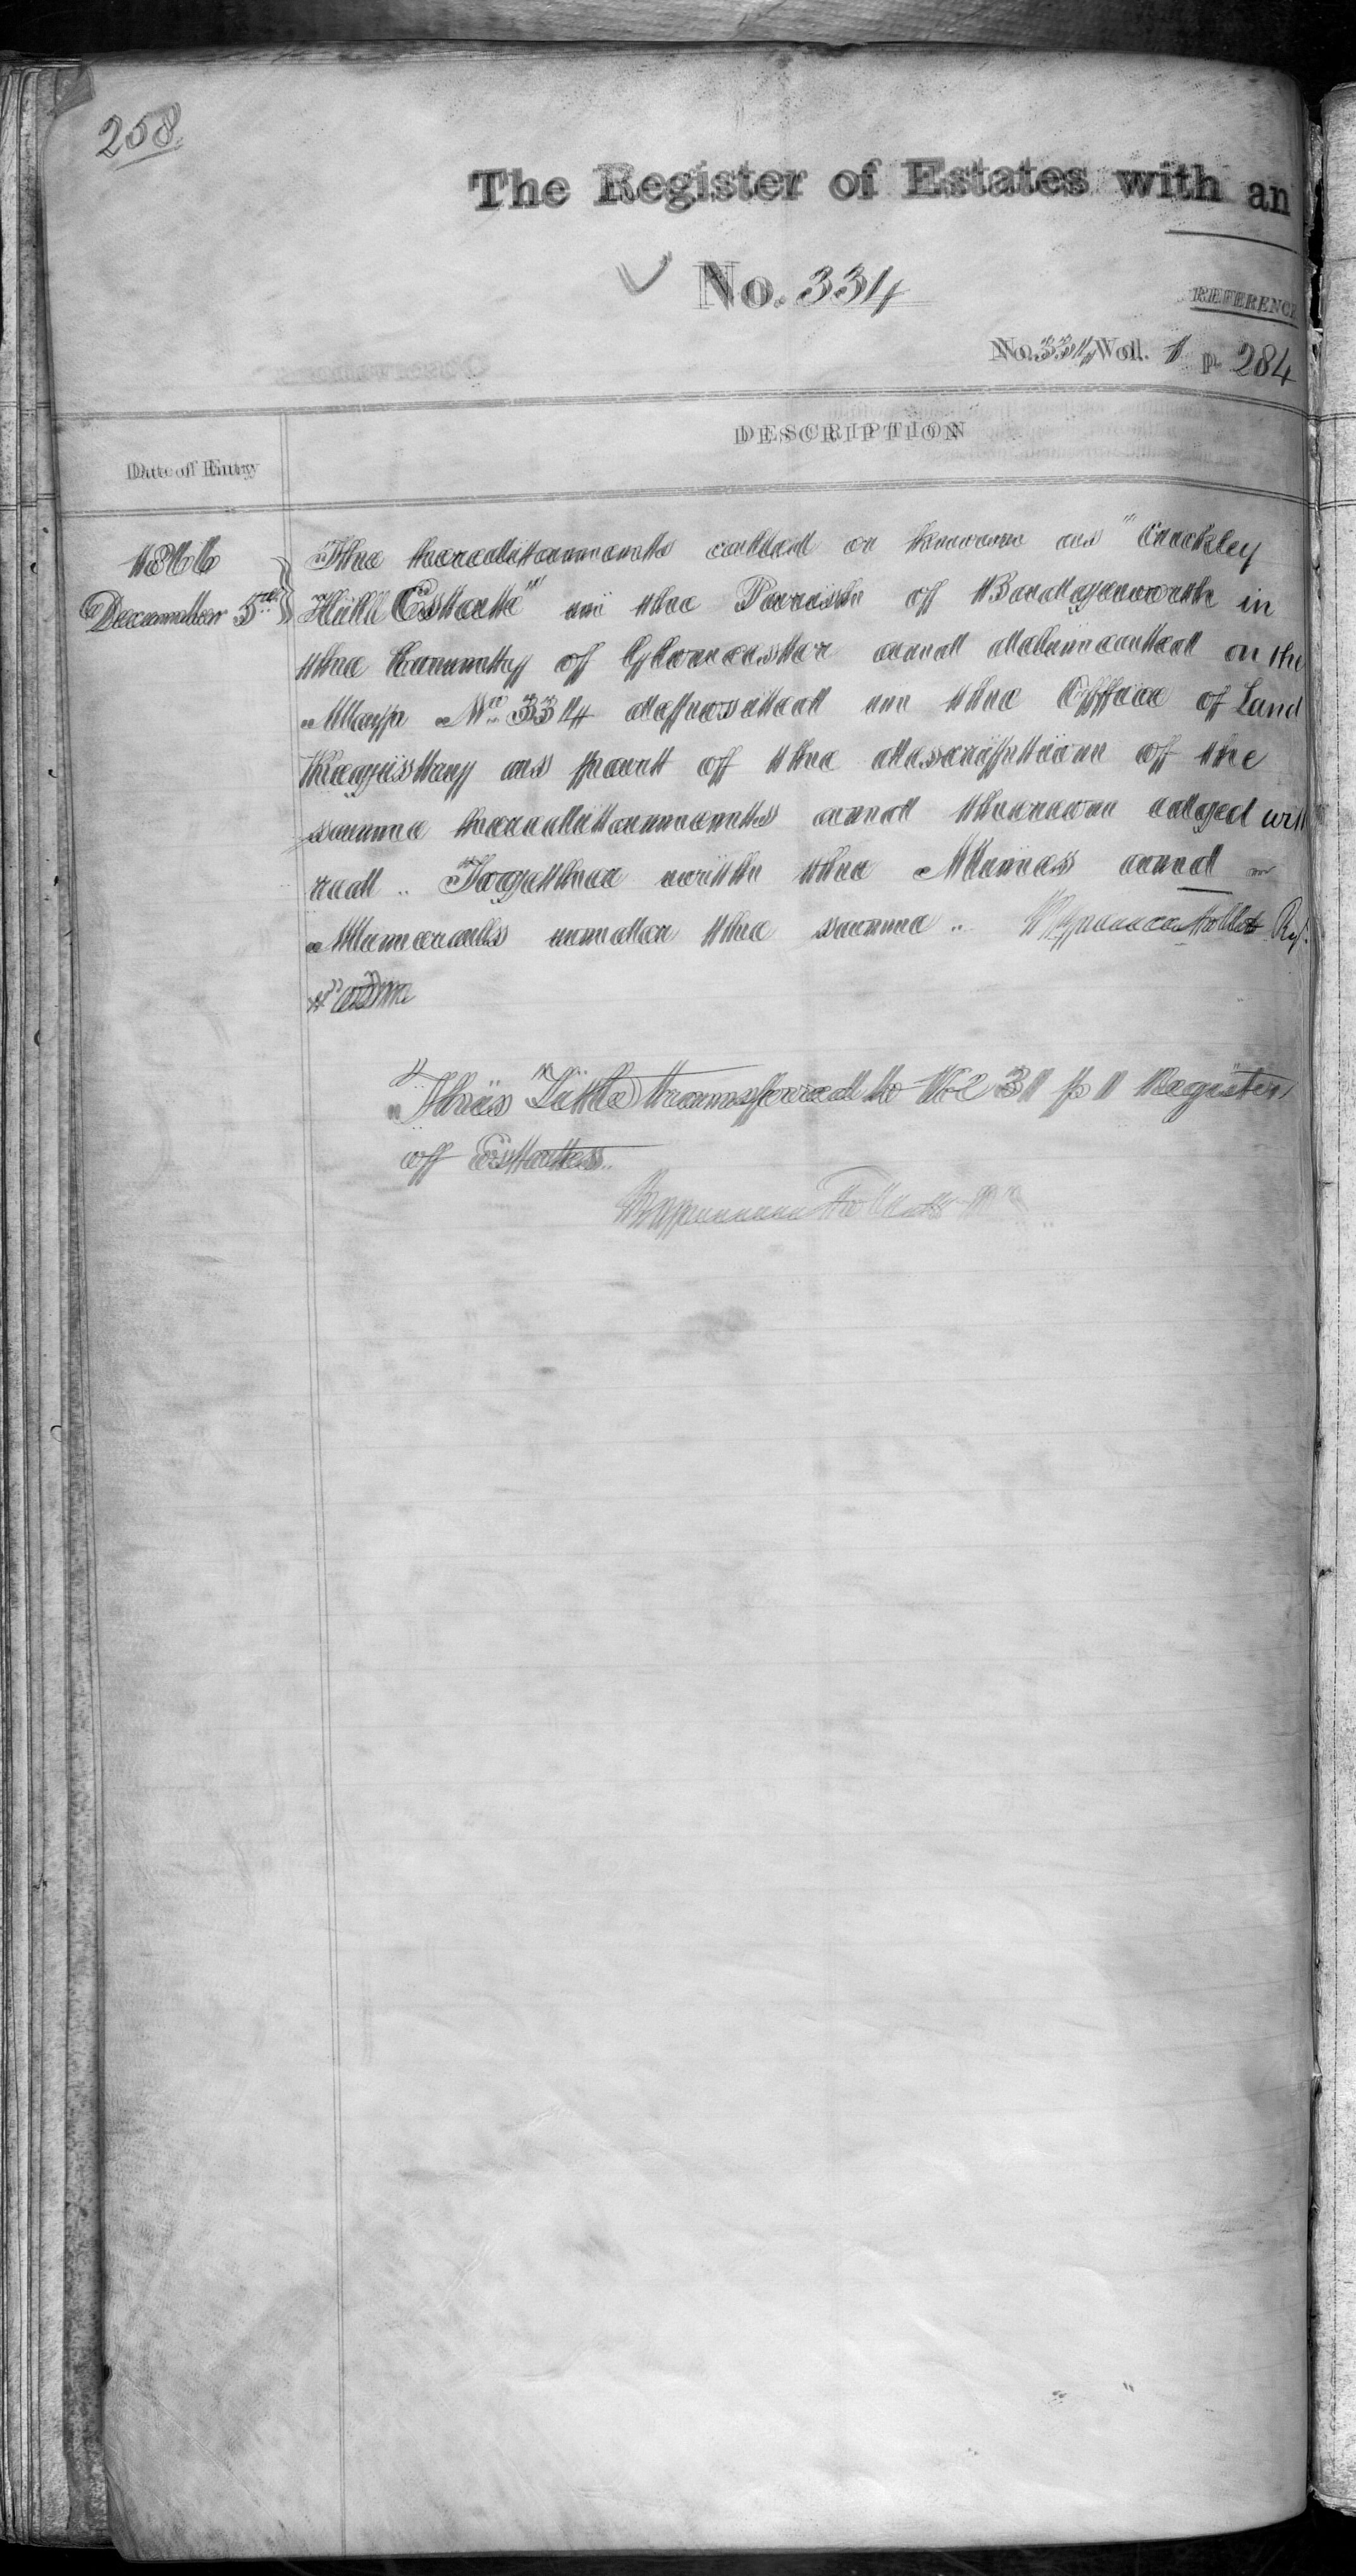 258
The Register of Estates with an
No. 334
REFERENCE
No. 334 Vol. 1 p 284
DESCRIPTION
Date of Entry
1866 The hereditaments called or known as "Crickley
December 5th Hill Estate" in the Parish of Badgeworth in
the County of Gloucester and delineated on the
Map No. 334 deposited in the Office of Land
Registry as part of the description of the
same hereditaments and thereon edged with
red. Together with the Mines and
Minerals under the same. Spencer Follett Regr.
This Title transferred to Vol 31 p 1 Register
of Estates.
Spencer Follett